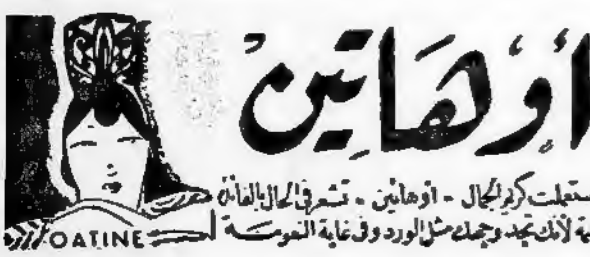 أوهاتين
ستعملت كريم الجمال - أوهاتين - تشعر في الحال بالفائدة
ية لأنك تجد وجهك مثل الورد وفي غاية النعومة
OATINE